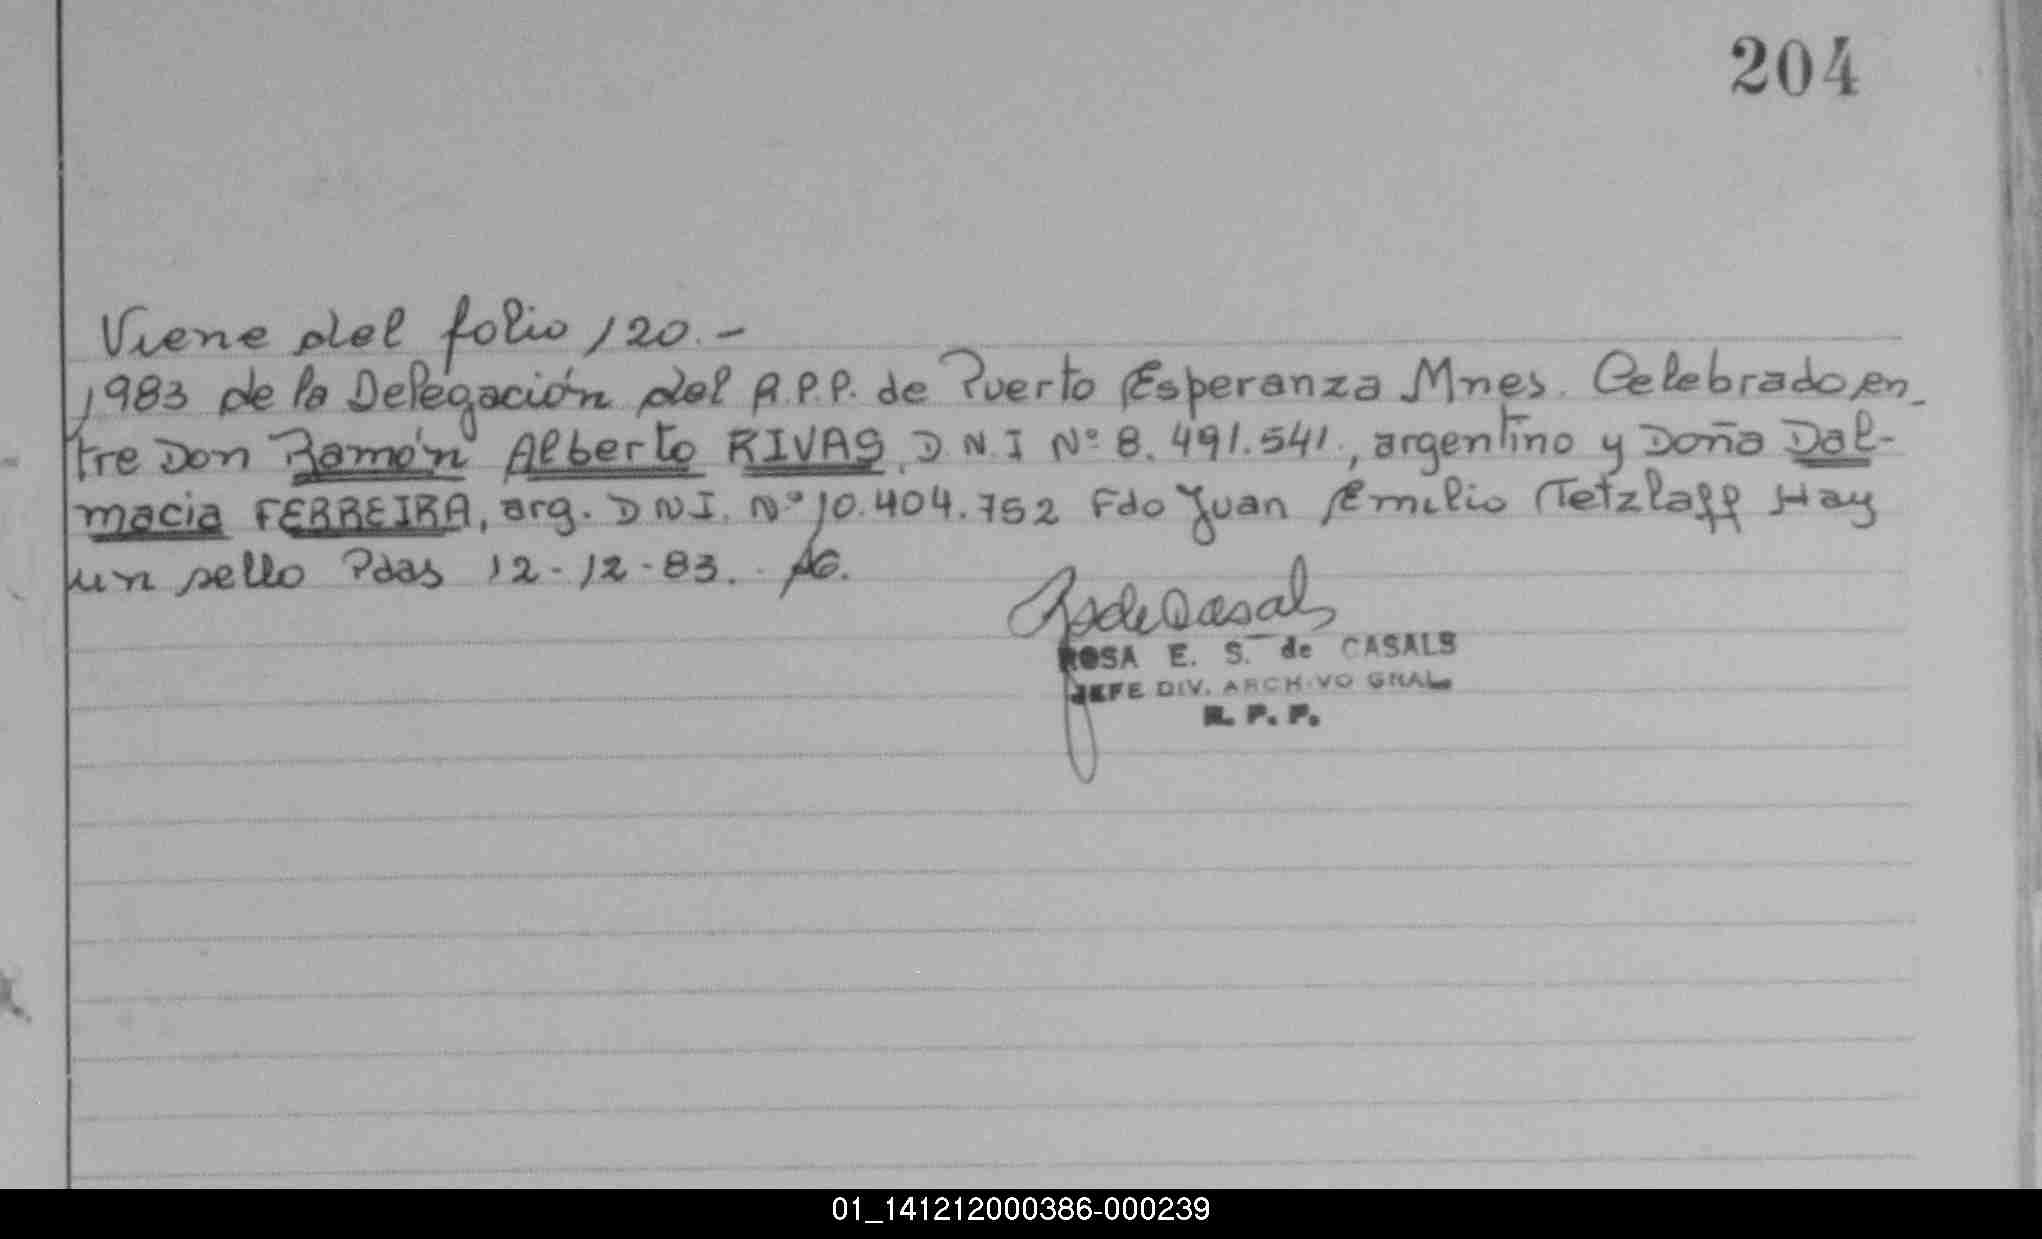 204
Viene del folio 120.-
1983 de la Delegación del R.P.P. de Puerto Esperanza Mnes. Celebrado en-
tre Don Ramón Alberto RIVAS, D.N.I Nº 8.491.541., argentino y Doña Dal-
macia FERREIRA, arg. DNI. Nº 10.404.752 Fdo Juan Emilio Tetzlaff Hay
un sello Pdas 12-12-83.
RsdeCasals
ROSA E. S. de CASALS
JEFE DIV. ARCHIVO GRAL.
R. P. P.
01_141212000386-000239